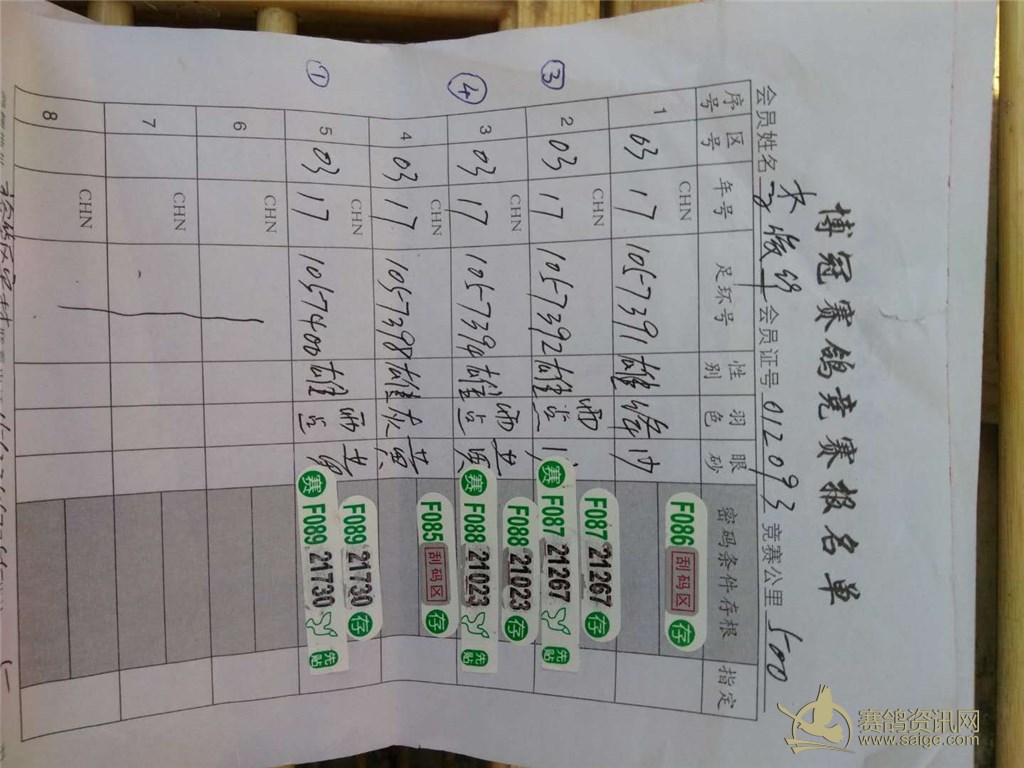 博冠赛鸽竞赛报名单
会员姓名 会员证号 0120093 竞赛公里 500
序号 区号 年号 足环号 性别 羽色 眼砂 密码条件存根 指定
CHN
1 03 17 1057391 雄 绛 沙 F086 刮码区 存
F087 21267 存
2 03 17 1057392 雄 雨点 赛 F087 21267 先贴
③
CHN F088 21023 存
3 03 17 1057394 雄 雨点 黄 赛 F088 21023 先贴
④
CHN
4 03 17 1057398 雄 灰 黄 F085 刮码区 存
CHN F089 21730 存
5 03 17 1057400 雄 雨点 黄 赛 F089 21730 先贴
①
6 CHN
7 CHN
8 CHN
赛鸽资讯网
www.saige.com